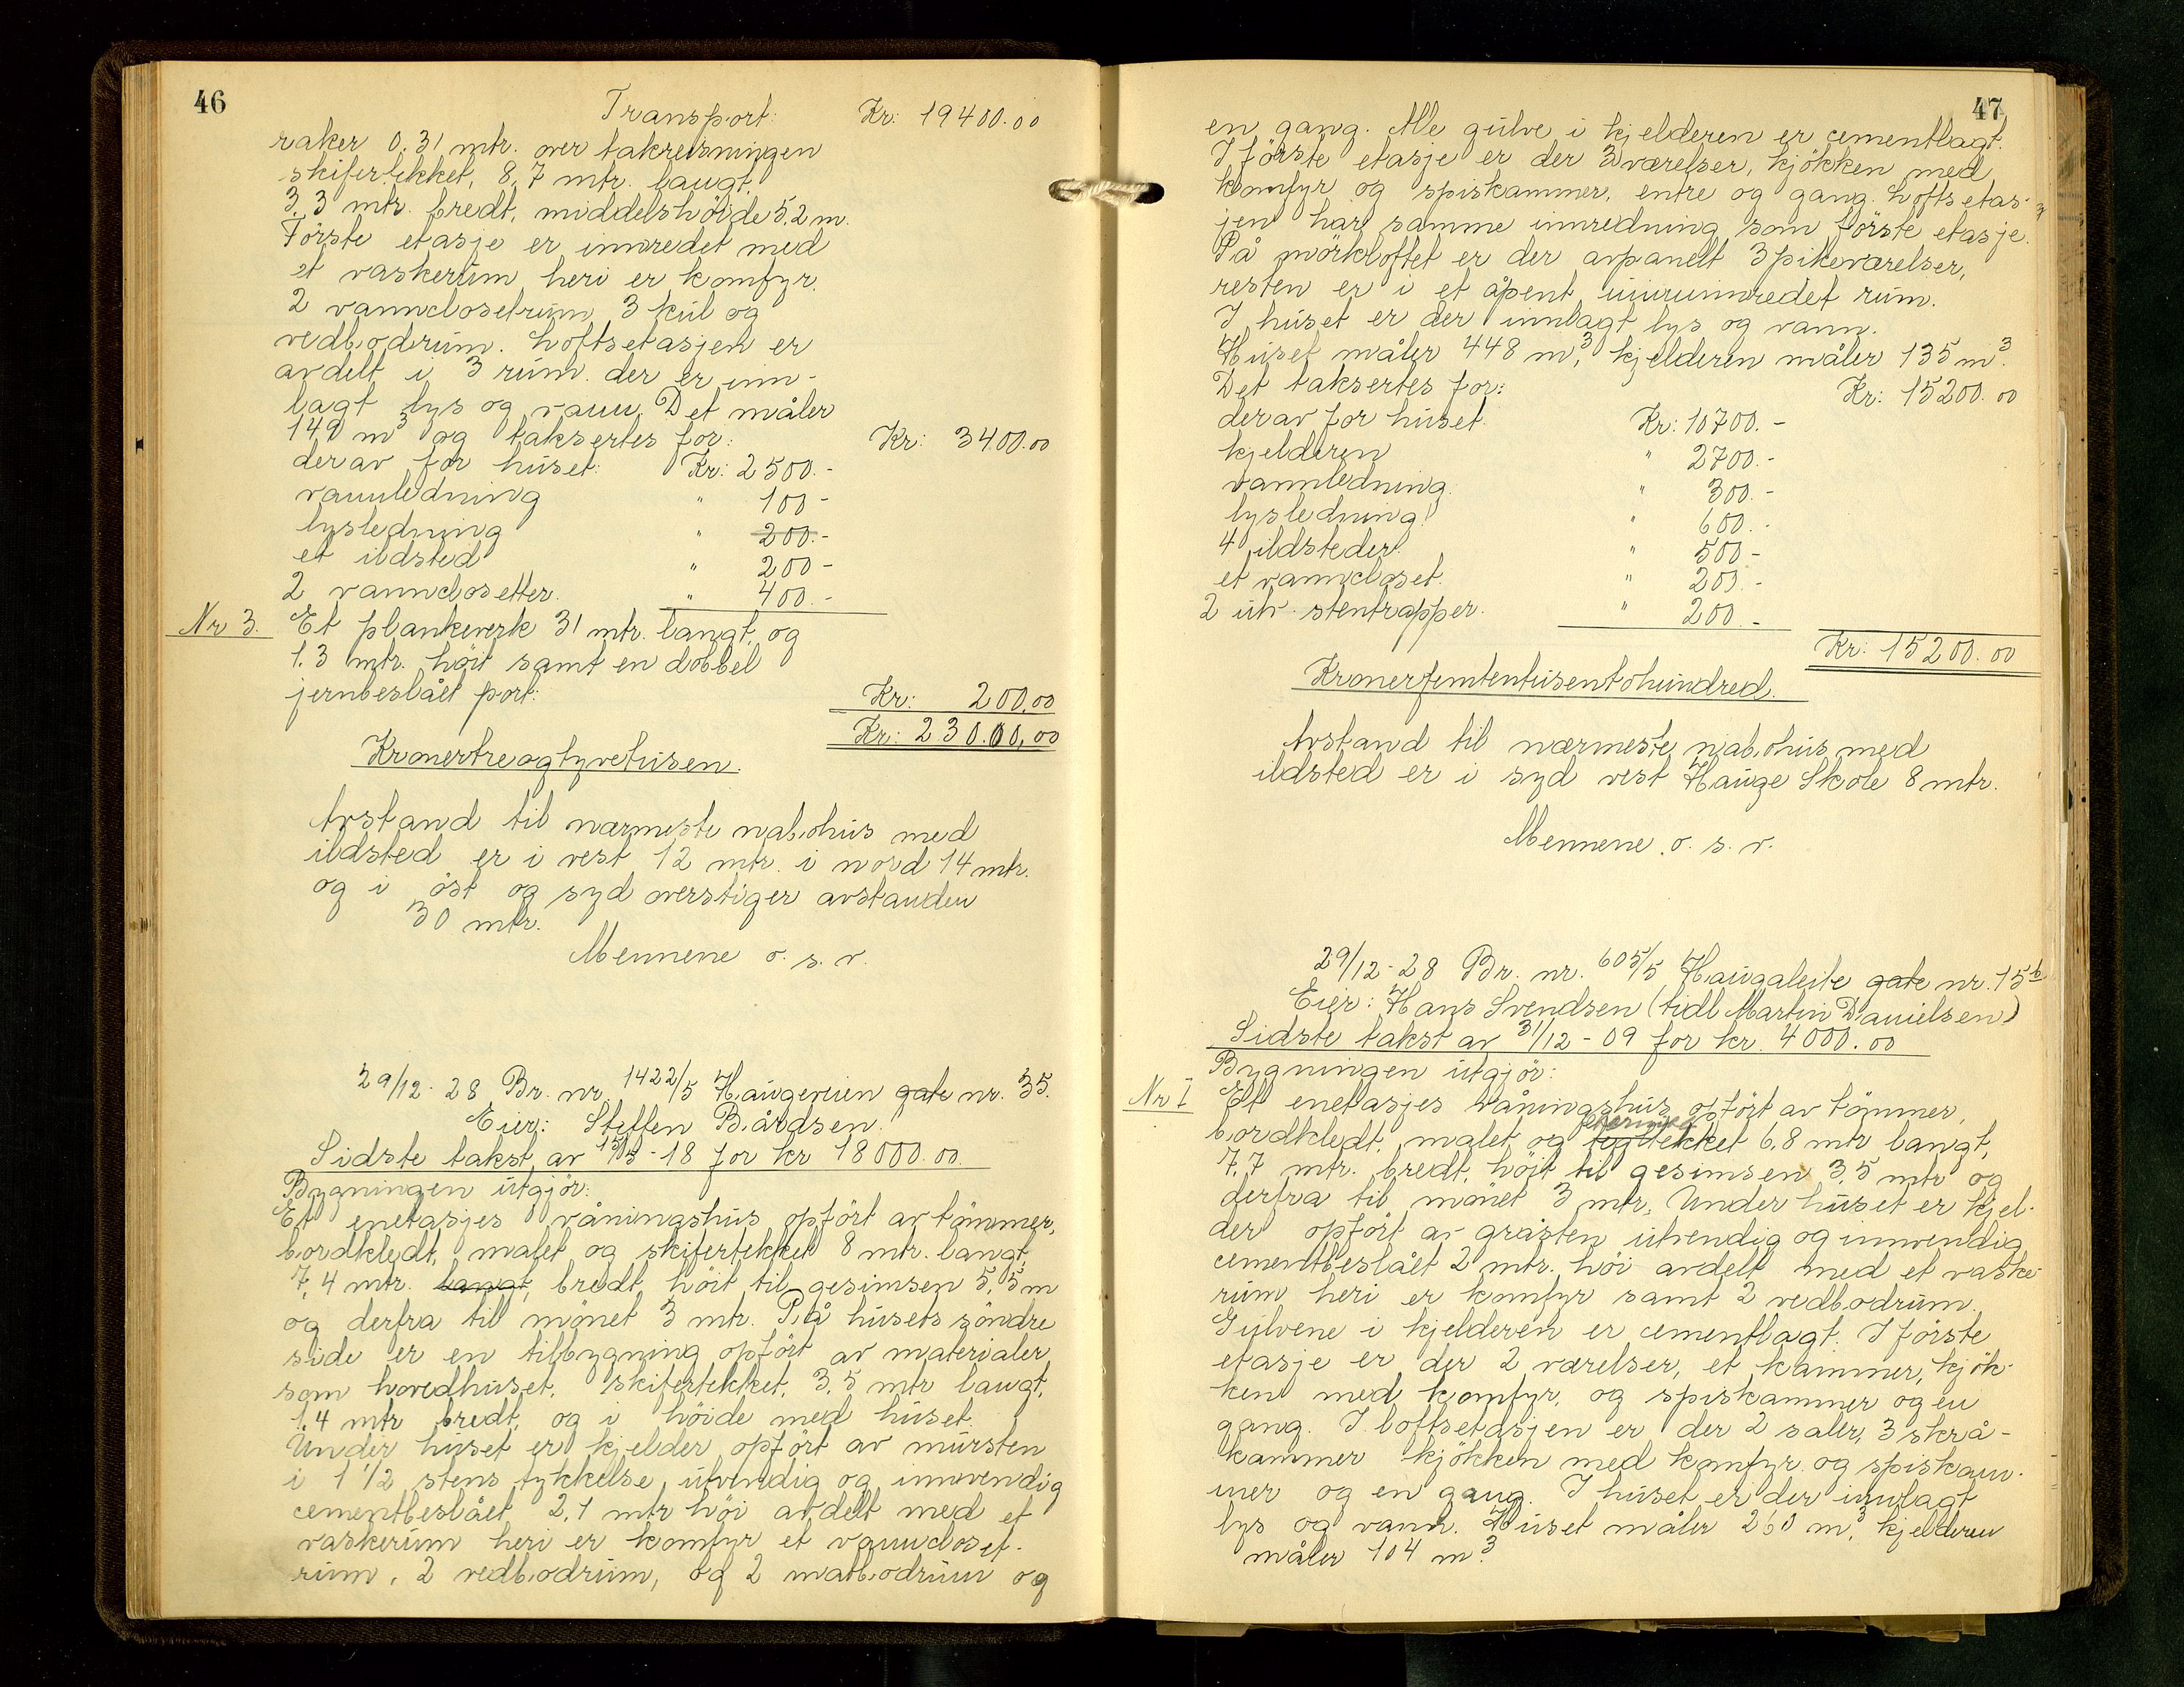 46
Transport: Kr: 19400.00
raker 0,31 mtr. over takreisningen
skifertekket, 8,7 mtr. langt,
3,3 mtr. bredt, middelshöide 5,2 m.
Förste etasje er innredet med
et vaskerum heri er komfyr.
2 vannclosetrum, 3 kul og
vedbodrum. Loftsetasjen er
avdelt i 3 rum. der er inn-
lagt lys og vann. Det måler
149 m³ og taksertes for: Kr: 3400.00
derav for huset: Kr: 2500.-
vannledning " 100-
lysledning " 200.-
et ildsted " 200-
2 vannclosetter. " 400.-
Nr 3. Et plankeverk 31 mtr. langt, og
1,3 mtr. höit samt en dobbel
jernbeslået port: Kr: 200,00
Kr: 23000,00
Kronertreogtyvetusen.
Avstand til nærmeste nabohus med
ildsted er i vest 12 mtr. i nord 14 mtr.
og i öst og syd overstiger avstanden
30 mtr.
Mennene o. s. v.
29/12-28 Br. nr. 1422/5 Haugeveien gate nr. 35.
Eier: Steffen Bårdsen.
Sidste takst av 15/5-18 for kr 18000.00.
Bygningen utgjör:
Et enetasjes våningshus opfört av tömmer,
bordkledt, malet og skifertekket 8 mtr. langt,
7,4 mtr. langt, bredt, höit til gesimsen 5,5 m
og derfra till mönet 3 mtr. På husets söndre
side er en tilbygning opfört av materialer
som hovedhuset, skifertekket, 3,5 mtr langt,
1,4 mtr bredt, og i höide med huset.
Under huset er kjelder opfört av mursten
i 1 1/2 stens tykkelse, utvendig og innvendig
cementbeslået 2,1 mtr höi avdelt med et
vaskerum heri er komfyr et vanncloset-
rum, 2 vedbodrum, og 2 matbodrum og
47
en gang. Alle gulve i kjelderen er cementlagt.
I förste etasje er der 3 værelser, kjökken med
komfyr og spiskammer, entre og gang. Loftsetas-
jen har samme innredning som förste etasje.
På mörkloftet er der avpanelt 3 pikeværelser,
resten er i et åpent uinnredet rum.
I huset er der innlagt lys og vann.
Huset måler 448 m³, kjelderen måler 135 m³.
Det taksertes for: Kr: 15200.00
derav for huset. Kr: 10700.-
kjelderen " 2700.-
vannledning. " 300.-
lysledning " 600.-
4 ildsteder. " 500-
et vanncloset. " 200.-
2 utv. stentrapper. " 200.-
Kr: 15200.00
Kronerfemtentusentohundred.
Avstand til nærmeste nabohus med
ildsted er i syd vest Hauge Skole 8 mtr.
Mennene o. s. v.
29/12-28 Br. nr. 605/5 Haugaleite gate nr. 15b
Eier: Hans Svendsen (tidl Martin Danielsen)
Sidste takst av 31/12-09 for kr. 4000.00
Bygningen utgjör:
Nr 1 Et enetasjes våningshus opfört av tömmer,
bordkledt, malet og tegltekket 6,8 mtr langt,
7,7 mtr. bredt, höit til gesimsen 3,5 mtr og
derfra til mönet 3 mtr. Under huset er kjel-
der opfört av gråsten utvendig og innvendig
cementbeslået 2 mtr. höi avdelt med et vaske-
rum heri er komfyr samt 2 vedbodrum.
Gulvene i kjelderen er cementlagt. I förste
etasje er der 2 værelser, et kammer, kjök-
ken med komfyr, og spiskammer og en
gang. I loftsetasjen er der 2 saler, 3 skrå-
kammer kjökken med komfyr og spiskam-
mer og en gang. I huset er der innlagt
lys og vann. Huset måler 260 m³, kjelderen
måler 104 m³.